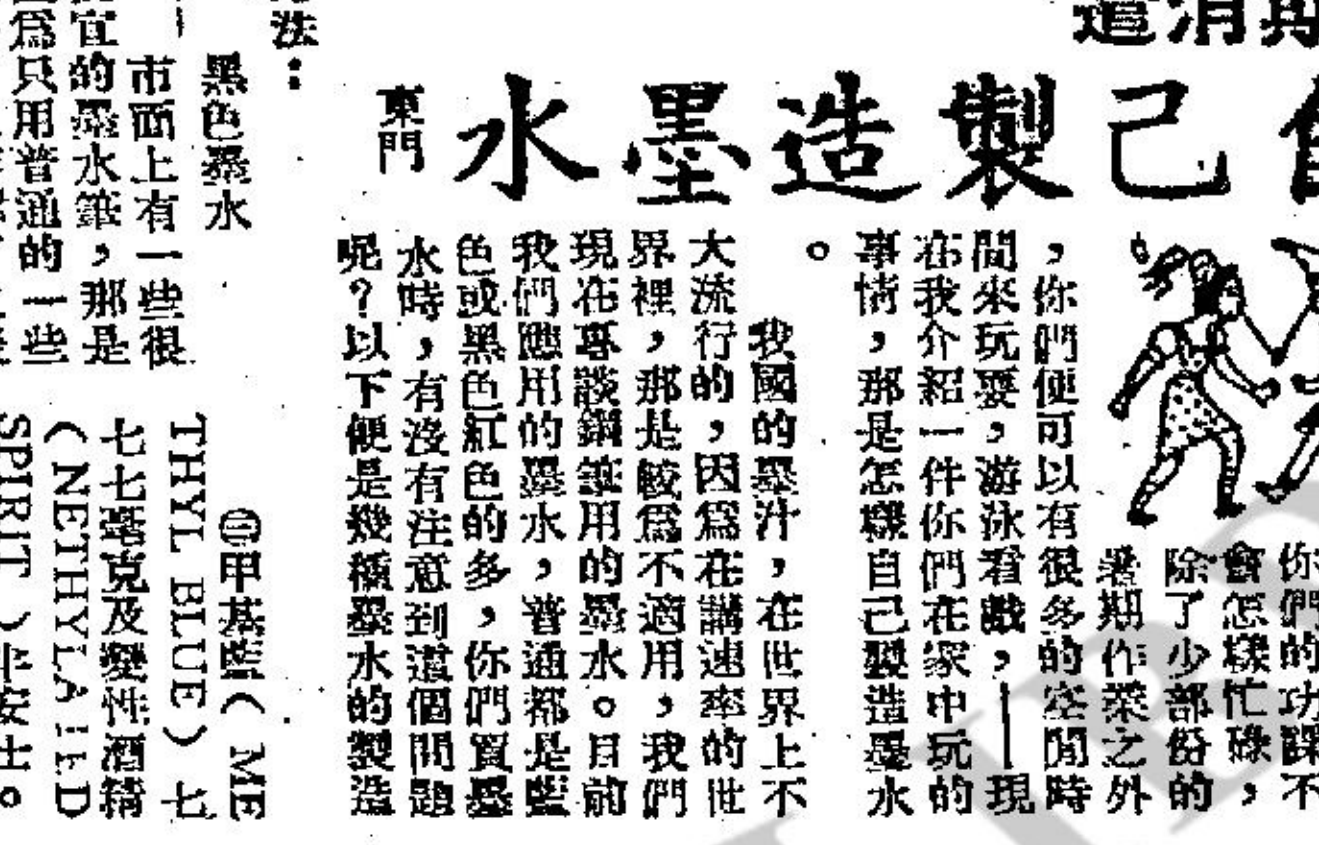 期消遣
自己製造墨水
東門
你們的功課不
會怎樣忙碌，
除了少部份的
暑期作業之外
，你們便可以有很多的空閒時
間來玩耍，游泳看戲，——現
在我介紹一件你們在家中玩的
事情，那是怎樣自己製造墨水
。
我國的墨汁，在世界上不
大流行的，因爲在講速率的世
界裡，那是較爲不適用，我們
現在專談鋼筆用的墨水。目前
我們應用的墨水，普通都是藍
色或黑色紅色的多，你們買墨
水時，有沒有注意到這個問題
呢？以下便是幾種墨水的製造
法：
黑色墨水
市面上有一些很
宜的墨水筆，那是
爲只用普通的一些
甲基藍（ME
THYL BLUE）七
七七毫克及變性酒精
（NETHYLATED
SPIRIT）半安士。